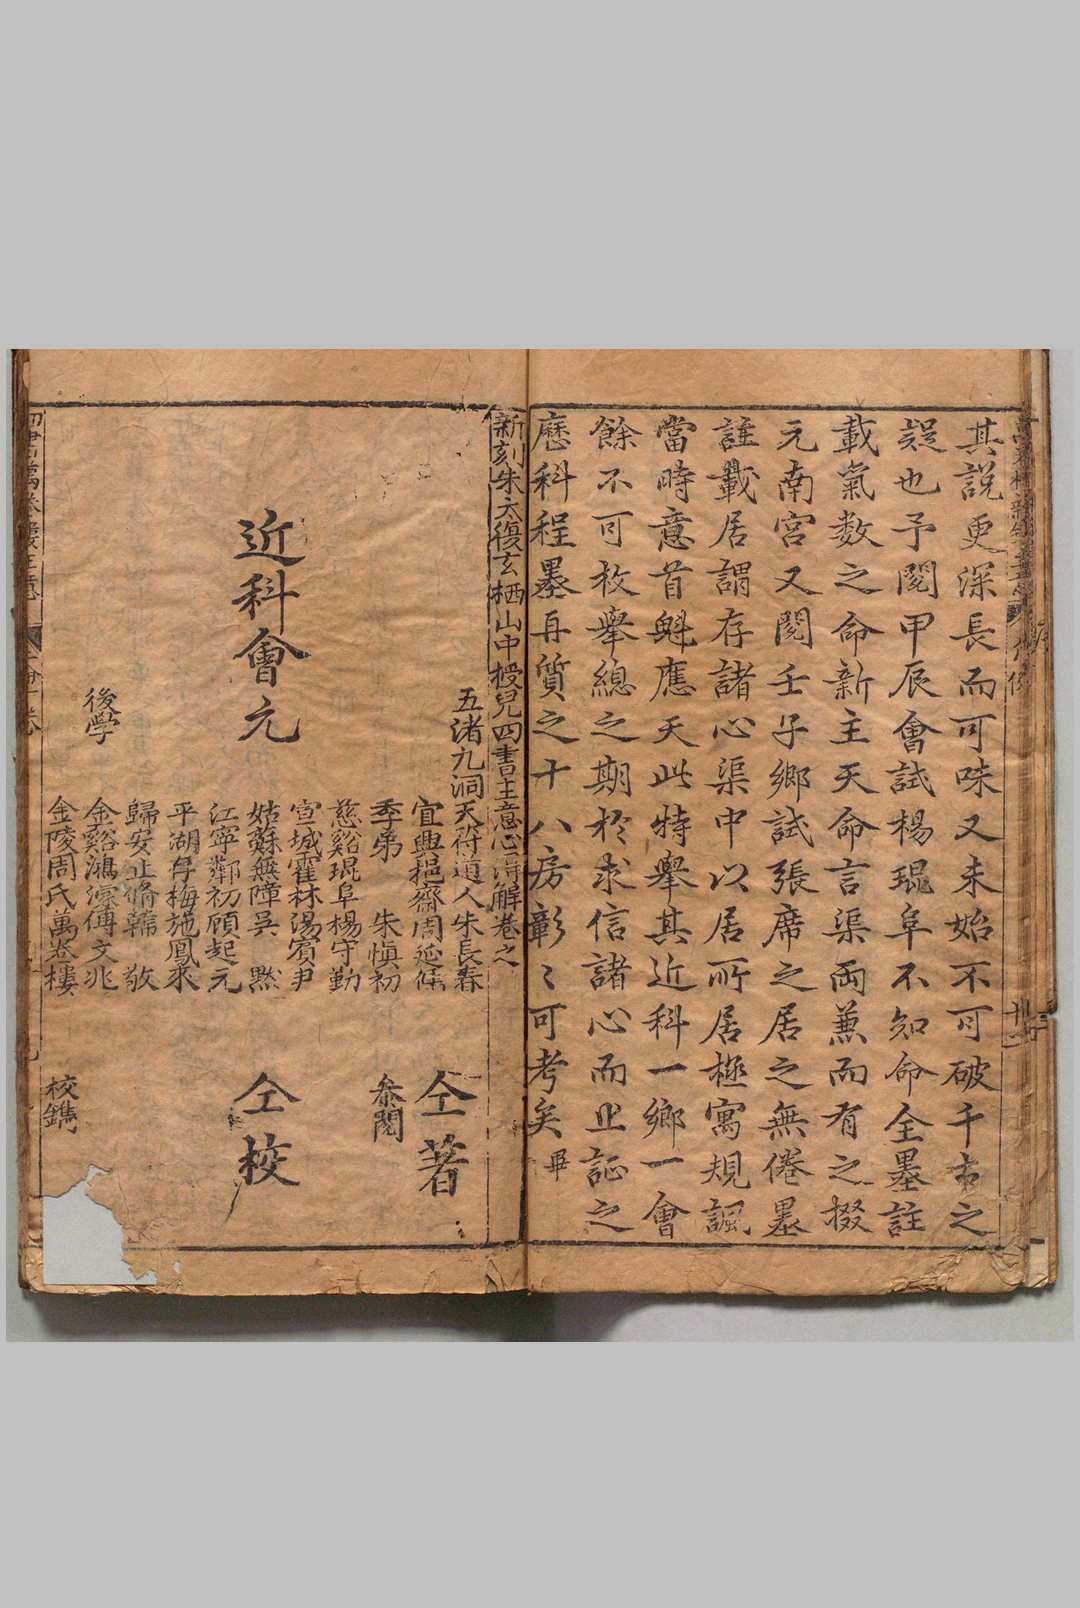 其說更深長而可味又未始不可破千古之
疑也予閱甲辰會試楊琨阜不知命全墨註
載氣数之命新主天命言渠両兼而有之掇
元南宮又閱壬子鄉試張席之居之無倦墨
註載居謂存諸心渠中以居所居極寓規諷
當時意首魁應天此特舉其近科一鄉一會
餘不可枚舉總之期於求信諸心而止証之
歷科程墨再質之十八房彰〻可考矣 畢
新刻朱太復玄栖山中授兒四書主意心得解卷之
五渚九洞天符道人朱長春
宜興挹齋周延儒
仝著
季弟 朱慎初
叅閱
慈谿琨阜楊守勤
宣城霍林湯賓尹
近科會元
姑蘇無障吳 黙
仝校
江寧鄰初顧起元
平湖存梅施鳳來
歸安止脩韓 敬
後學
金谿鴻濛傅文兆
金陵周氏萬卷樓
校鐫